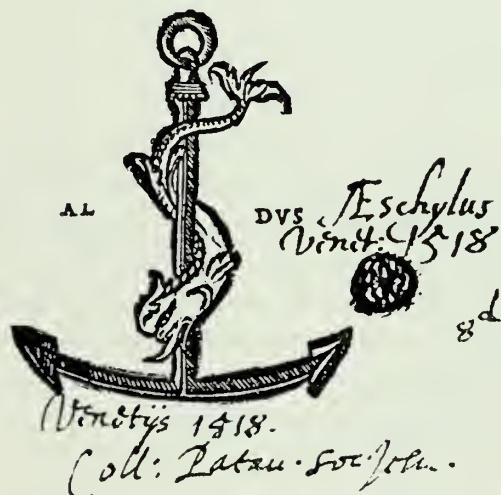 AL DVS Æschylus
Venet: 1518
8d
Venetijs 1518.
Coll: Patau. Soc Jesu.